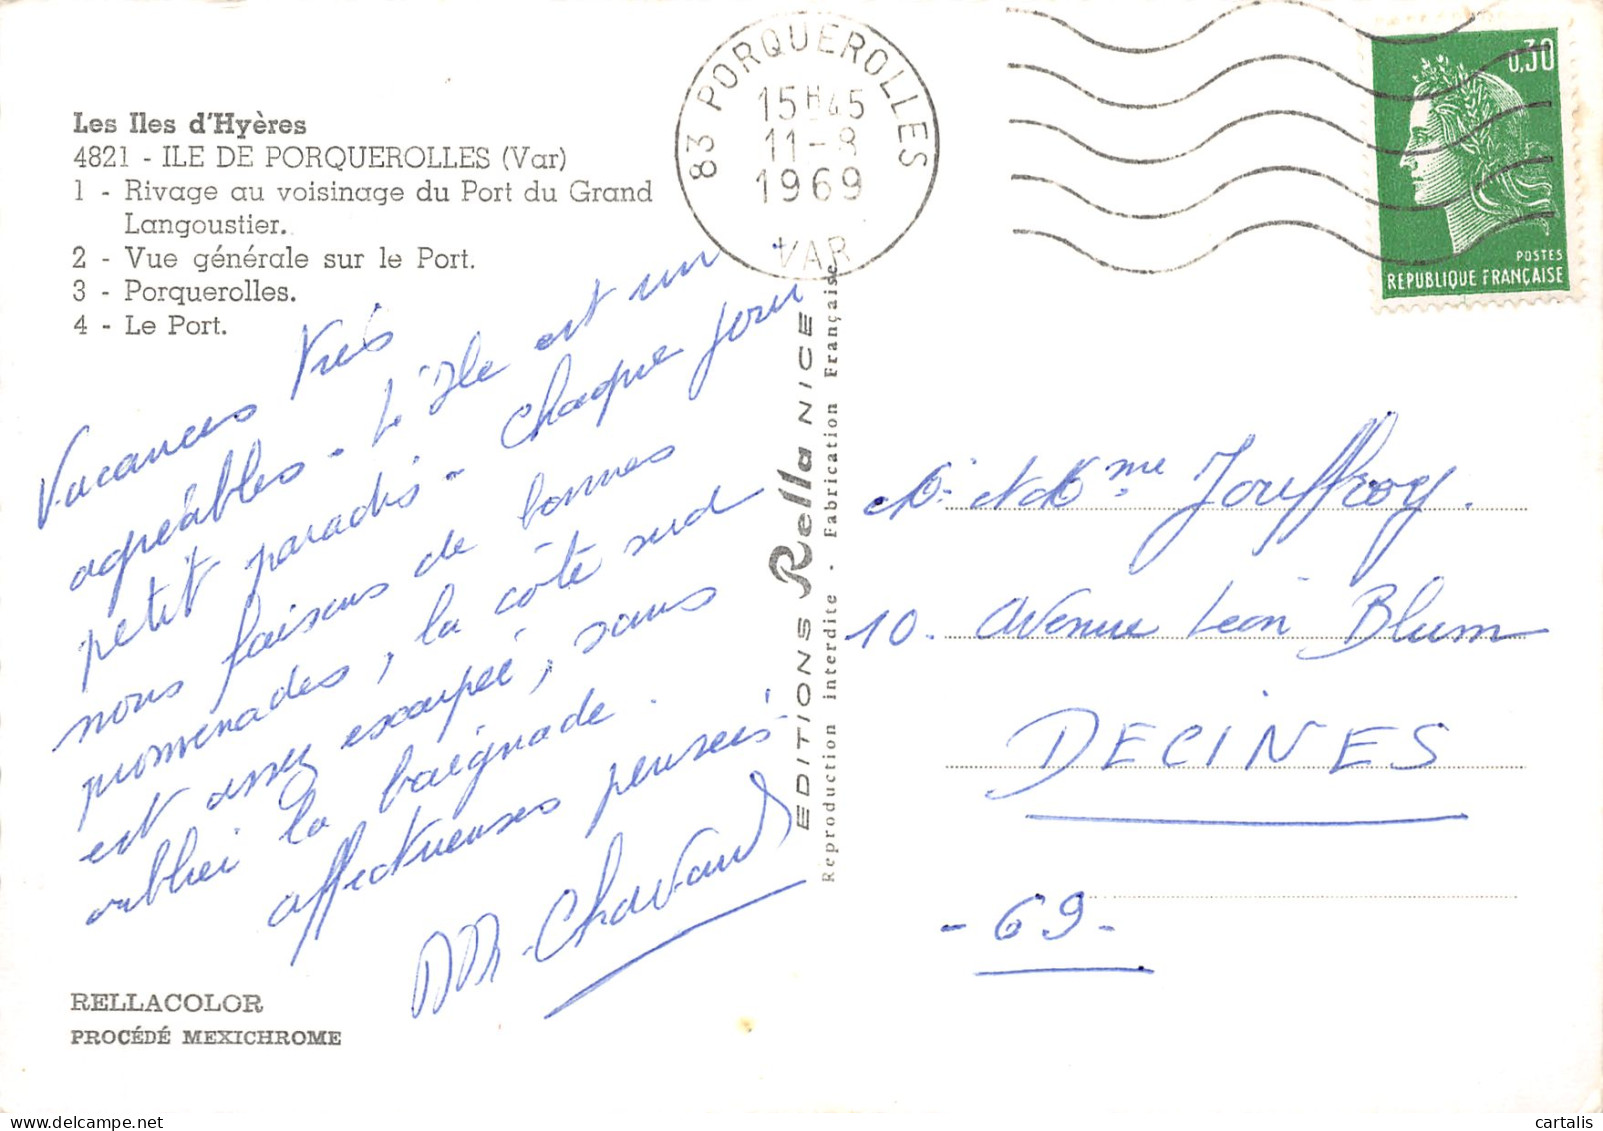 Les Iles d'Hyères
4821 - ILE DE PORQUEROLLES (Var)
1 - Rivage au voisinage du Port du Grand
Langoustier.
2 - Vue générale sur le Port.
3 - Porquerolles.
4 - Le Port.
83 PORQUEROLLES
15H45
11-8
1969
VAR
0,30
POSTES
REPUBLIQUE FRANÇAISE
Vacances très
agréables - L'Ile est un
petit paradis - Chaque jour
nous faisons de bonnes
promenades, la côte sud
est assez escarpée, sans
oublier la baignade.
affectueuses pensées
Chavand
EDITIONS Rella NICE
Reproduction interdite - Fabrication Française
M. et Mme Jouffroy.
10. Avenue Léon Blum
DECINES
- 69 -
RELLACOLOR
PROCÉDÉ MEXICHROME
cartalis